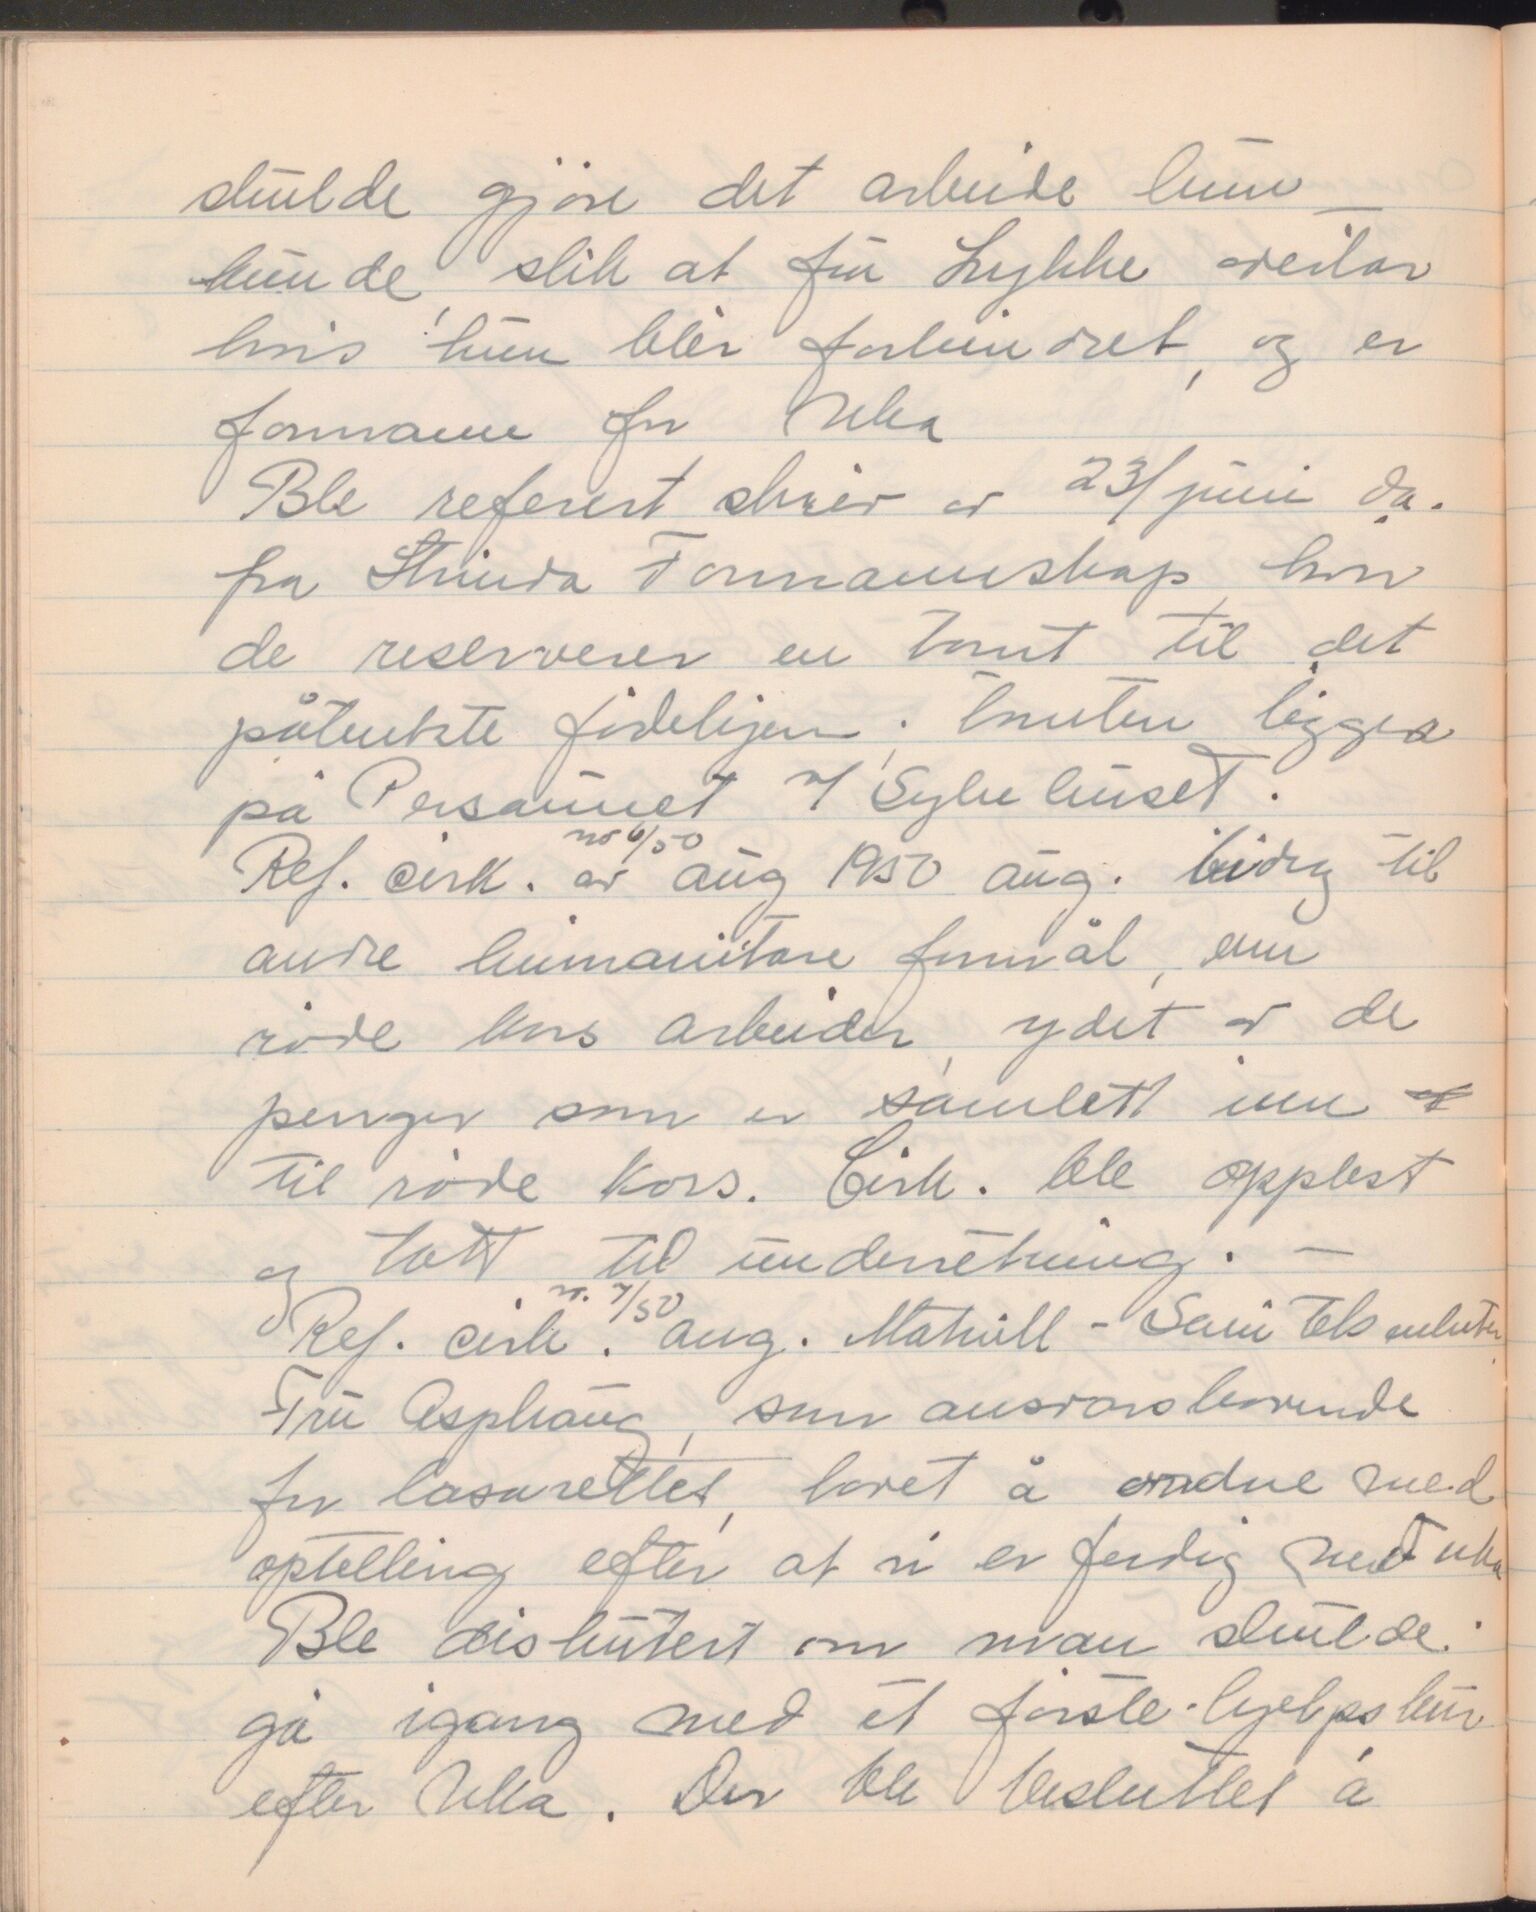 skulde gjöre det arbeide hun
kunde, slik at fru Lykke overtar
hvis hun blir forhindret, og er
formann for Uka
Ble referert skriv av 23/juni d.a.
fra Strinda Formannskap, hvor
de reserverer en tomt til det
påtenkte födehjem; tomten ligger
på Persaunet v/ Sykehuset.
Ref. cirk. nr 6/50 av aug 1950 ang. bidrag til
andre humanitære formål, enn
röde kors arbeider, ydet av de
penger som er samlett inn
til röde Kors. Cirk. ble opplest
og tatt til underretning. —
Ref. cirk. nr. 7/50 ang. Matriell - Sani
Fru Asphaug, som ansvarshavende
for lasarettet, lovet å ordne med
optelling efter at vi er ferdig med uka
Ble diskutert om man skulde
gå igang med et förste-hjelpskur
efter Uka. Der ble besluttet å